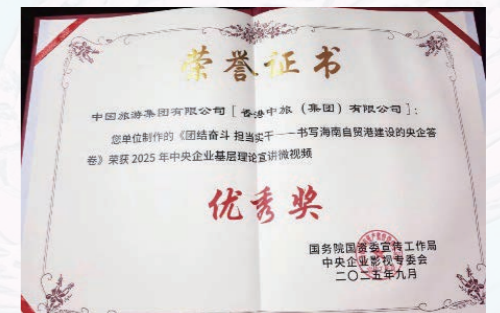 荣誉证书
中国旅游集团有限公司[香港中旅(集团)有限公司]:
您单位制作的《团结奋斗 担当实干——书写海南自贸港建设的央企答
卷》荣获 2025 年中央企业基层理论宣讲微视频
优秀奖
国务院国资委宣传工作局
中央企业影视专委会
二〇二五年九月